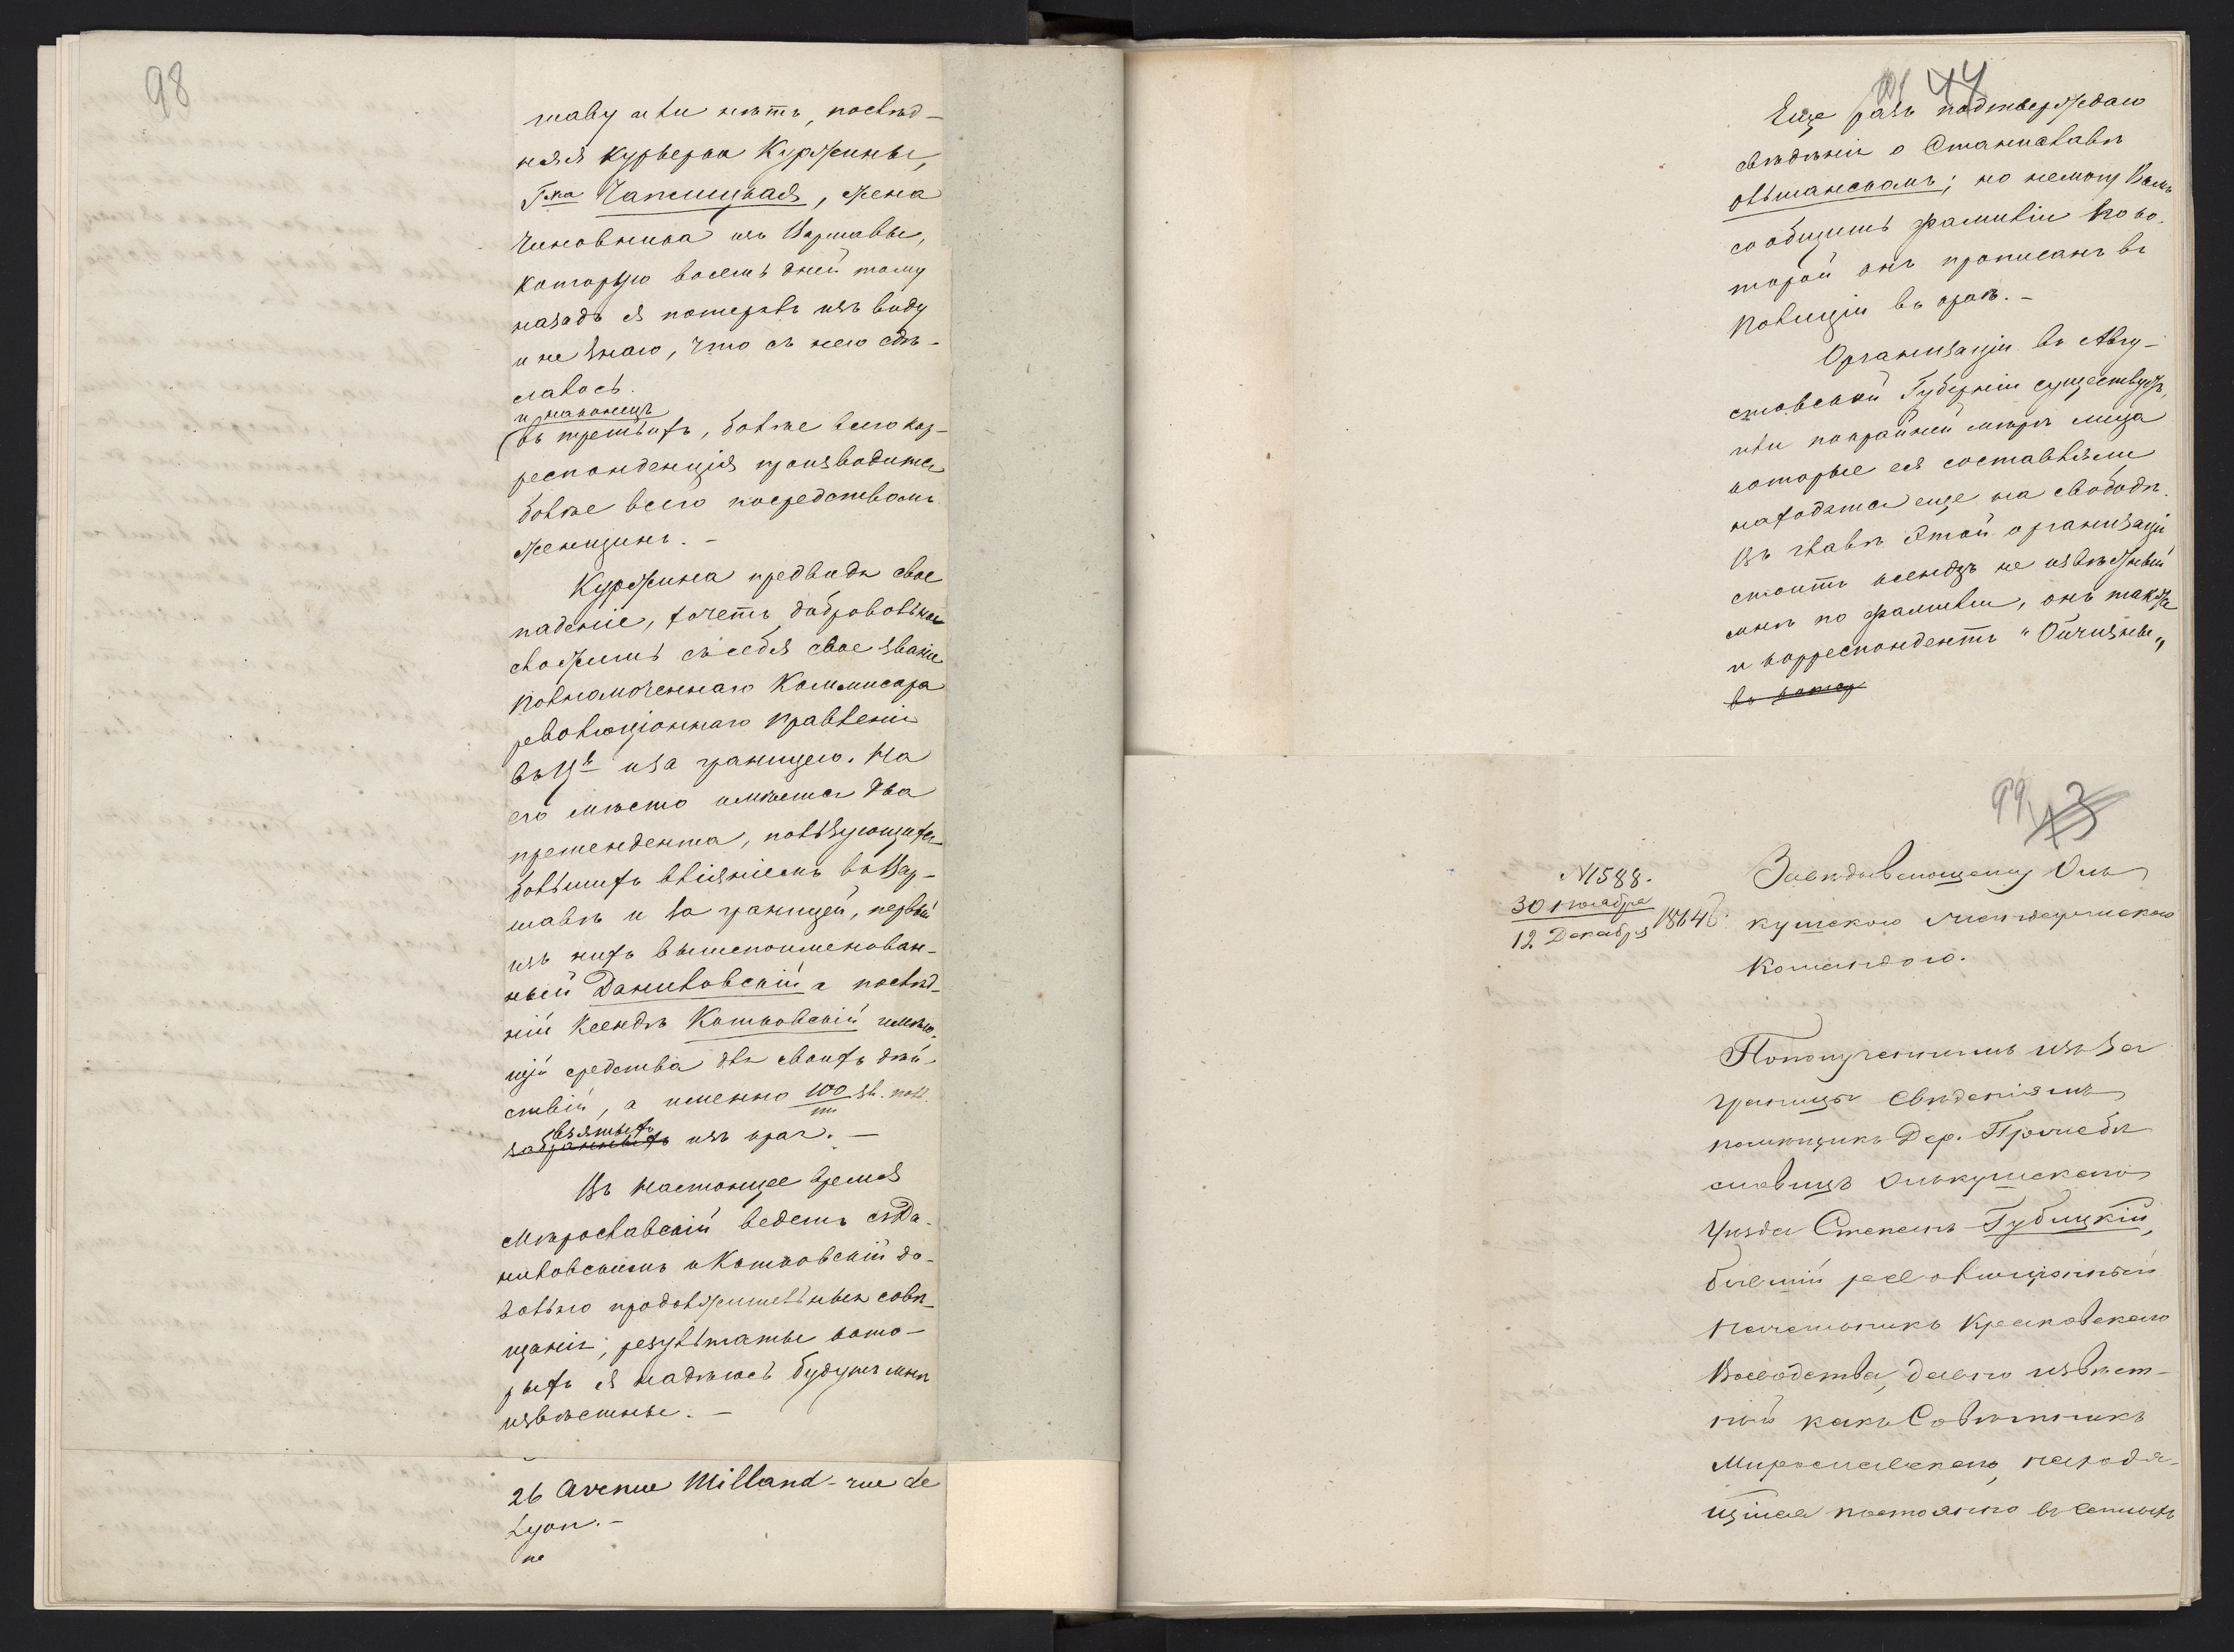 98
шаву или нѣтъ, послѣд-
няя курьерка Куржины,
Г-жа Чаплицкая, жена
чиновника изъ Варшавы,
которую восемь дней тому
назадъ я потерялъ изъ виду
и не знаю, что съ нею сдѣ-
лалось.
и наконецъ
въ третьихъ, болѣе всего кор-
респонденція производится
болѣе всего посредствомъ
женщинъ. -
Куржина предвидя свое
паденіе, хочетъ добровольно
сложить съ себя свое званіе
полномоченнаго Коммисара
революціоннаго правленія
въ Ц-ѣ и за границею. На
его мѣсто имѣется два
претендента, пользующихся
большимъ вліяніемъ въ Вар-
шавѣ и за границей, первый
изъ нихъ вышепоименован-
ный Даниловскій а послѣд-
ній Ксендзъ Котковскій имѣю-
щій средства для своихъ дѣй-
ствій, а именно 100 зл. пол.
взятыхъ
забранныхъ изъ края. -
Въ настоящее время
Мѣрославскій ведетъ съ Да-
ниловскимъ и Котковскій до-
вольно продолжительныя совѣ-
щанія; результаты кото-
рыхъ я надѣюсь будутъ мнѣ
извѣстны. -
26 Avenue Milland - rue de
Lyon. -
не
44
Еще разъ подтверждаю
свѣдѣнія о Станиславѣ
Ольшанскомъ; но не могу Вамъ
сообщить фамиліи по ко-
торой онъ прописанъ въ
полиціи въ краѣ. -
Организація въ Авгу-
стовской Губерніи существуетъ,
или покрайней мѣрѣ лица
которые ея составляли
находятся еще на свободѣ.
Въ главѣ этой организаціи
стоитъ ксендзъ не извѣстный
мнѣ по фамиліи, онъ также
и корреспондентъ "Ойчизны"
въ котор
99. 43
N 1588.
30 Ноября
12 Декабря 1864 г.
Завѣдывающему Оль-
кушскою Жандармскою
Командою.
По полученнымъ изъ за
границы свѣдѣніямъ
помѣщикъ Дер.
Олькушскаго
Уѣзда Степанъ Губицкій,
бывшій революціонный
Начальникъ Краковскаго
Воеводства, давно извѣст-
ный какъ Совѣтникъ
Мирославскаго, находя-
щійся постоянно въ самыхъ